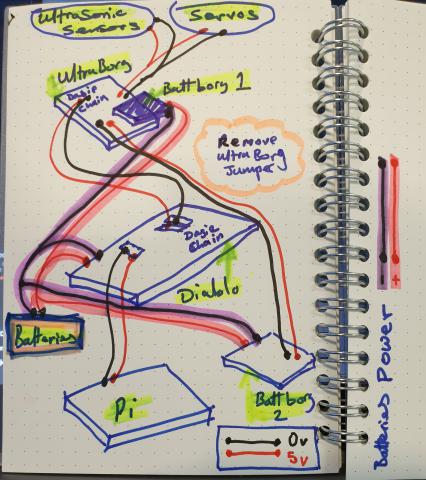 UltraSonic
Sensors
Servos
UltraBorg
Daisie
Chain
Battborg 1
Remove
UltraBorg
Jumper
Dasie
Chain
Diablo
Batteries
Pi
Battborg
2
0v
5v
+
Batteries Power